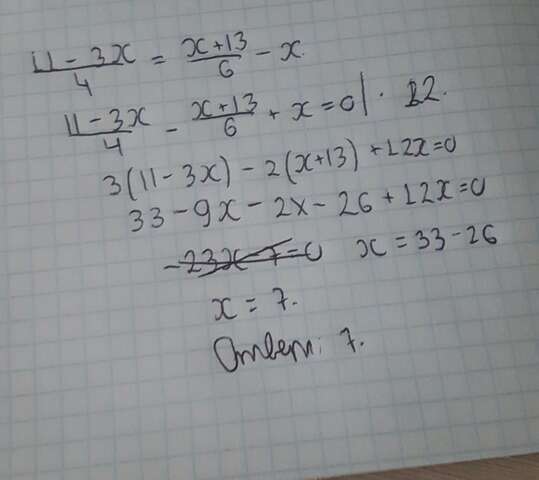 11 - 3x / 4 = x + 13 / 6 - x
11 - 3x / 4 - x + 13 / 6 + x = 0 | · 12.
3(11 - 3x) - 2(x + 13) + 12x = 0
33 - 9x - 2x - 26 + 12x = 0
-23x - 7 = 0 x = 33 - 26
x = 7.
Ответ: 7.